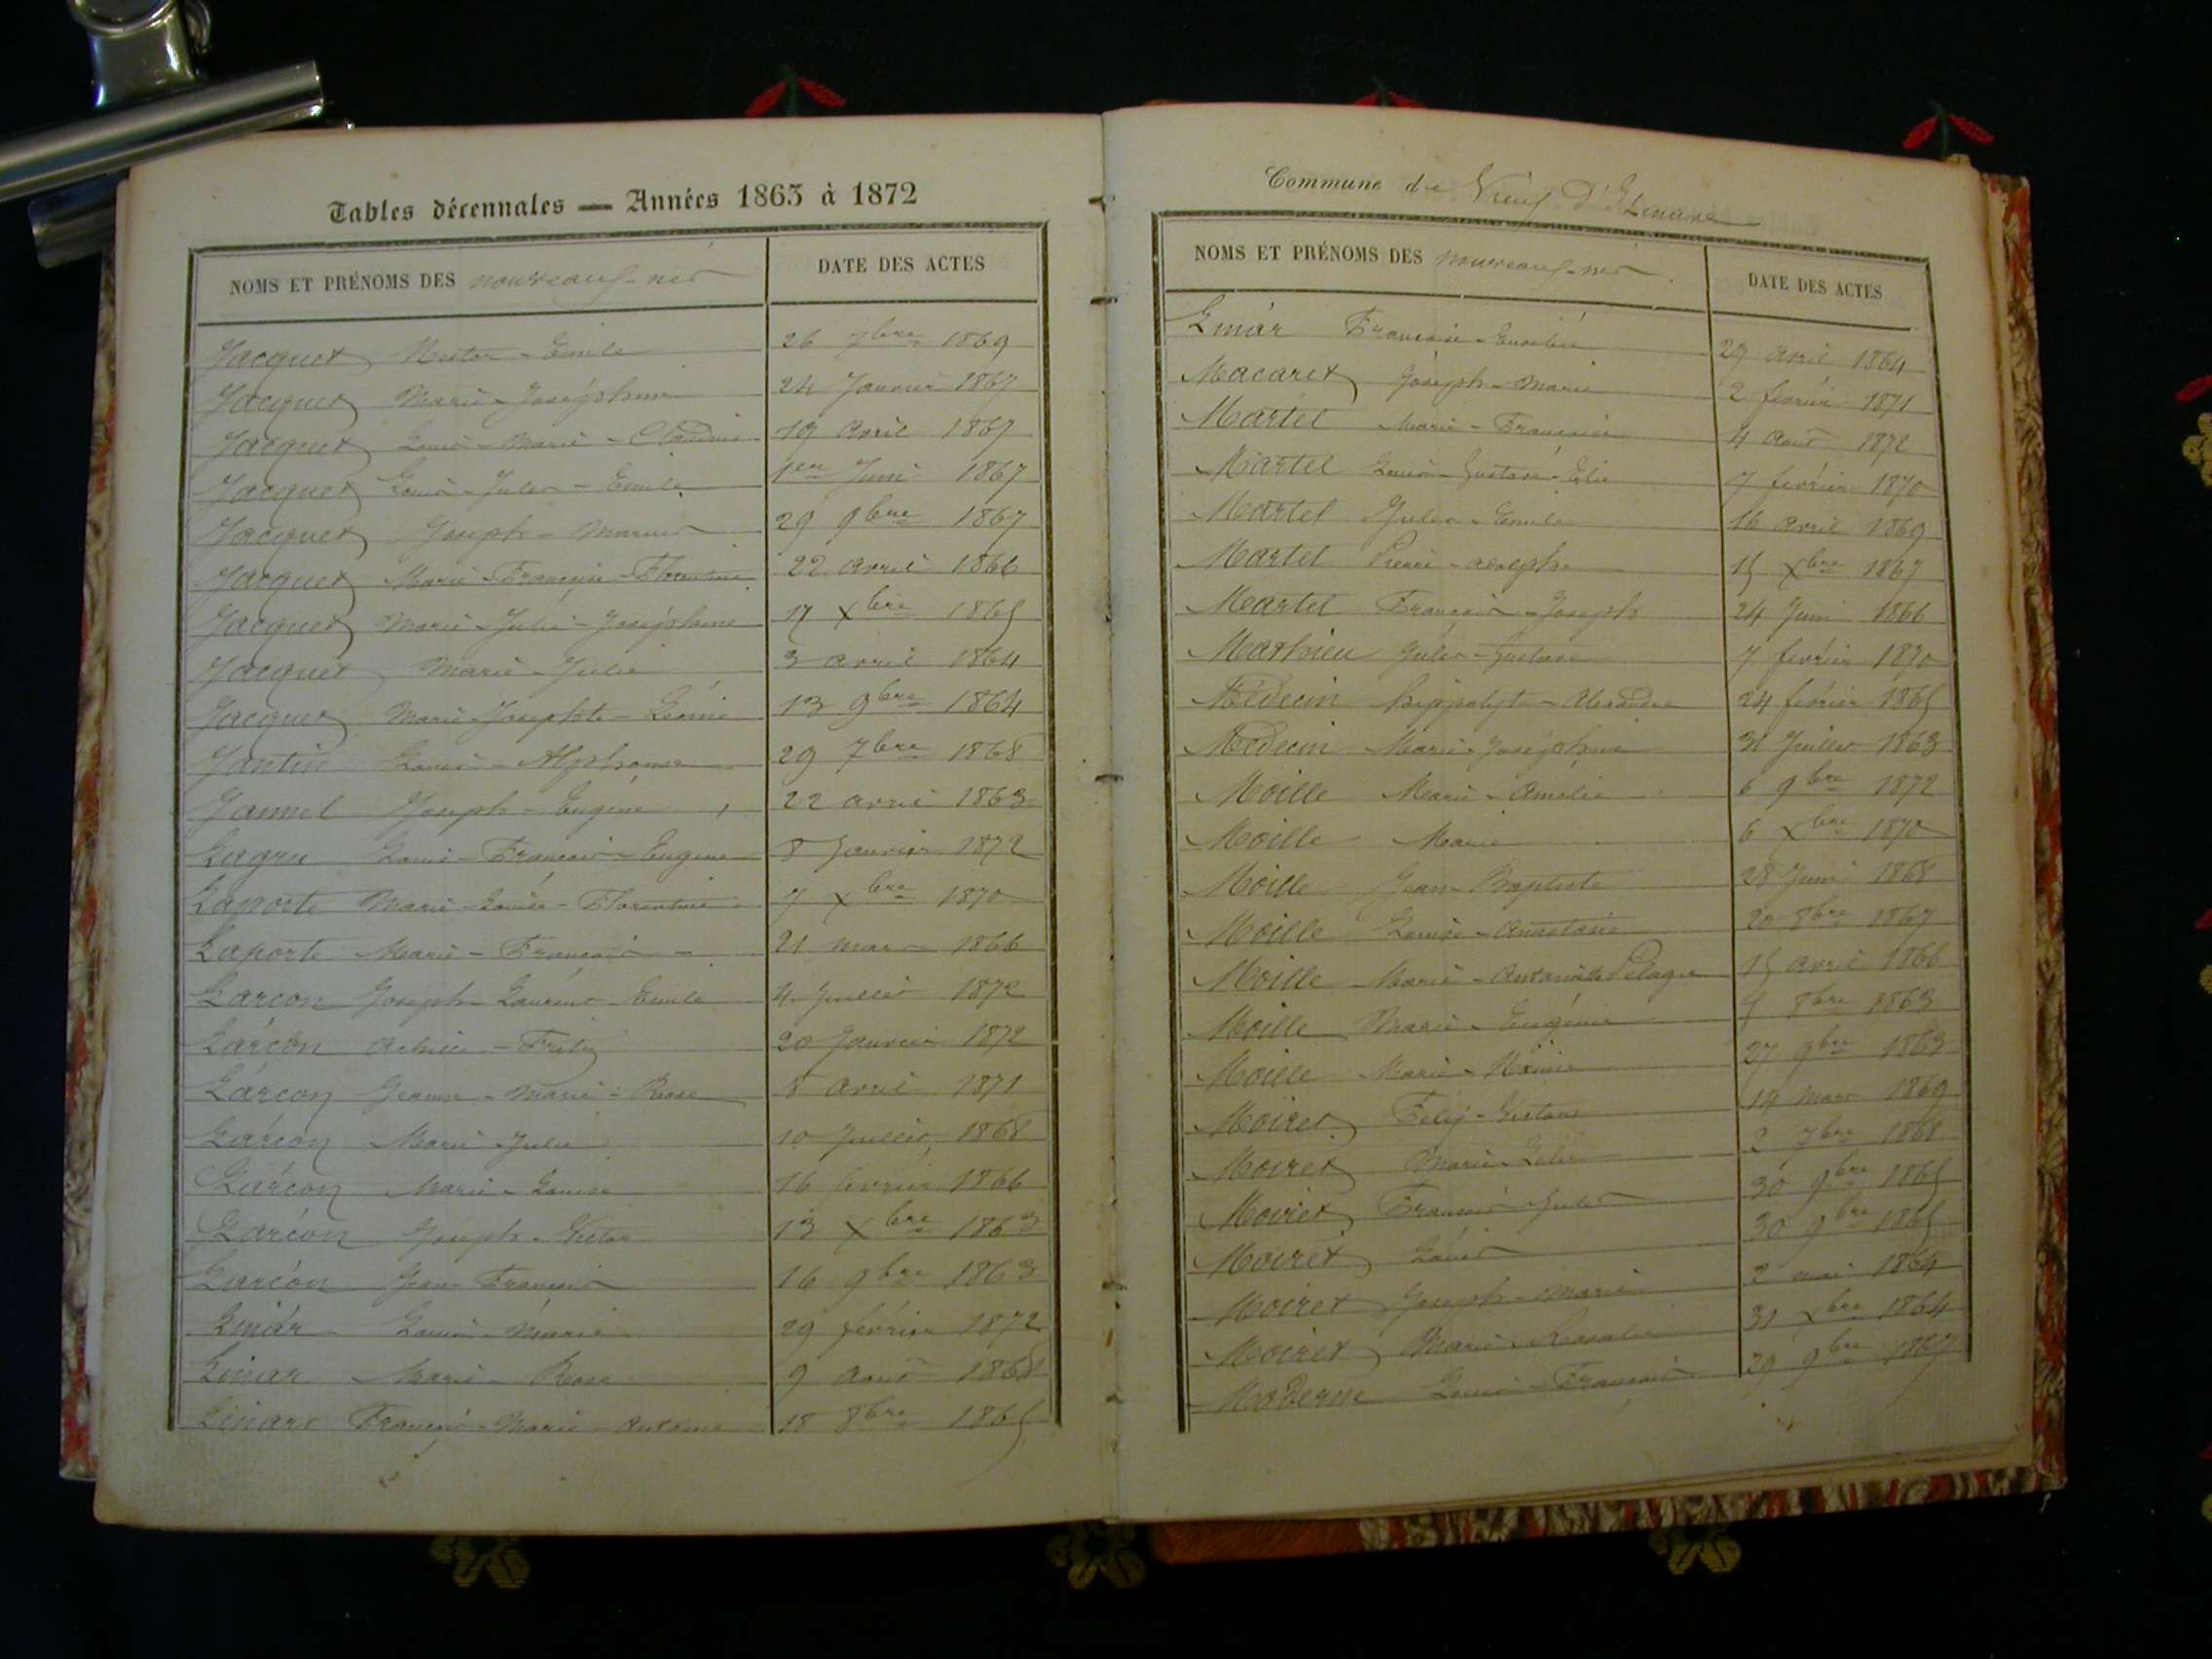 Tables décennales — Années 1863 à 1872
NOMS ET PRÉNOMS DES nouveaux-nés DATE DES ACTES
Jacquet Nestor-Emile 26 7bre 1869
Jacquet Marie-Joséphine 24 Janvier 1867
Jacquet Louis-Marie-Claudius 19 avril 1867
Jacquet Louis-Jules-Emile 1er Juin 1867
Jacquet Joseph-Marius 29 9bre 1867
Jacquet Marie-Françoise-Florentine 22 avril 1866
Jacquet Marie-Julie-Joséphine 17 Xbre 1865
Jacquet Marie-Julie 3 avril 1864
Jacquet Marie-Josephte-Léonie 13 9bre 1864
Jantin Louis-Alphonse 29 7bre 1868
Jannel Joseph-Eugène 22 avril 1863
Lagru Louis-François-Eugène 8 Janvier 1872
Laporte Marie-Louise-Florentine 7 Xbre 1870
Laporte Marie-François 21 mars 1866
Larcon Joseph-Laurent-Emile 4 Juillet 1872
Larcon Achille-Fritz 20 Janvier 1872
Larcon Jeanne-Marie-Rose 8 avril 1871
Larcon Marie-Julie 10 Juillet 1868
Larcon Marie-Louise 16 février 1866
Larcon Joseph-Victor 13 Xbre 1863
Larcon Jean-François 16 9bre 1863
Linar Louis-Marie 29 février 1872
Linar Marie-Rose 9 Aout 1868
Linar François-Marie-Antoine 18 8bre 1865
Commune de Vieux d'Izenave
NOMS ET PRÉNOMS DES nouveaux-nés DATE DES ACTES
Linar François-Eusébie 29 avril 1864
Macaret Joseph-Marie 2 février 1871
Martel Marie-Françoise 4 aout 1872
Martel Louis-Gustave-Elie 7 février 1870
Martel Jules-Emile 16 avril 1869
Martel Pierre-adolphe 15 Xbre 1867
Martel François-Joseph 24 Juin 1866
Mathieu Jules-Gustave 7 février 1870
Médecin hippolyte-Alexandre 24 février 1865
Médecin Marie-Joséphine 31 Juillet 1863
Moille Marie-Amélie 6 9bre 1872
Moille Marie 6 Xbre 1870
Moille Jean-Baptiste 28 Juin 1868
Moille Louise-Anastasie 20 8bre 1867
Moille Marie-Antoinette Pélagie 15 avril 1866
Moille Marie-Eugénie 5 8bre 1863
Moille Marie 27 9bre 1863
Moiret Félix-Gustave 14 mars 1869
Moiret Marie 2 7bre 1868
Moiret François-Jules 30 9bre 1865
Moiret Louis 30 9bre 1865
Moiret Joseph-Marie 2 mai 1864
Moiret Marie-Rosalie 31 Xbre 1864
Moderne Louis-François 29 9bre 1867